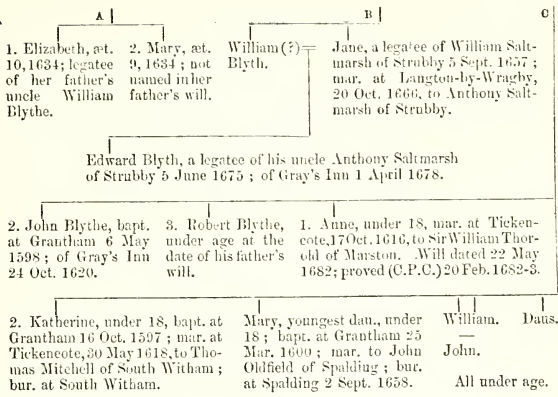 A
B
C
1. Elizabeth, æt.
10, 1634; legatee
of her father's
uncle William
Blythe.
2. Mary, æt.
9, 1634; not
named in her
father's will.
William (?)=
Blyth.
Jane, a legatee of William Salt-
marsh of Strubby 5 Sept. 1657;
mar. at Langton-by-Wragby,
20 Oct. 1666, to Anthony Salt-
marsh of Strubby.
Edward Blyth, a legatee of his uncle Anthony Saltmarsh
of Strubby 5 June 1675; of Gray's Inn 1 April 1678.
2. John Blythe, bapt.
at Grantham 6 May
1598; of Gray's Inn
24 Oct. 1620.
3. Robert Blythe,
under age at the
date of his father's
will.
1. Anne, under 18, mar. at Ticken-
cote, 17 Oct. 1616, to Sir William Thor-
old of Marston. Will dated 22 May
1682; proved (C.P.C.) 20 Feb. 1682-3.
2. Katherine, under 18, bapt. at
Grantham 16 Oct. 1597; mar. at
Tickencote, 30 May 1618, to Tho-
mas Mitchell of South Witham;
bur. at South Witham.
Mary, youngest dau., under
18; bapt. at Grantham 25
Mar. 1600; mar. to John
Oldfield of Spalding; bur.
at Spalding 2 Sept. 1658.
William.
—
John.
Daus.
All under age.